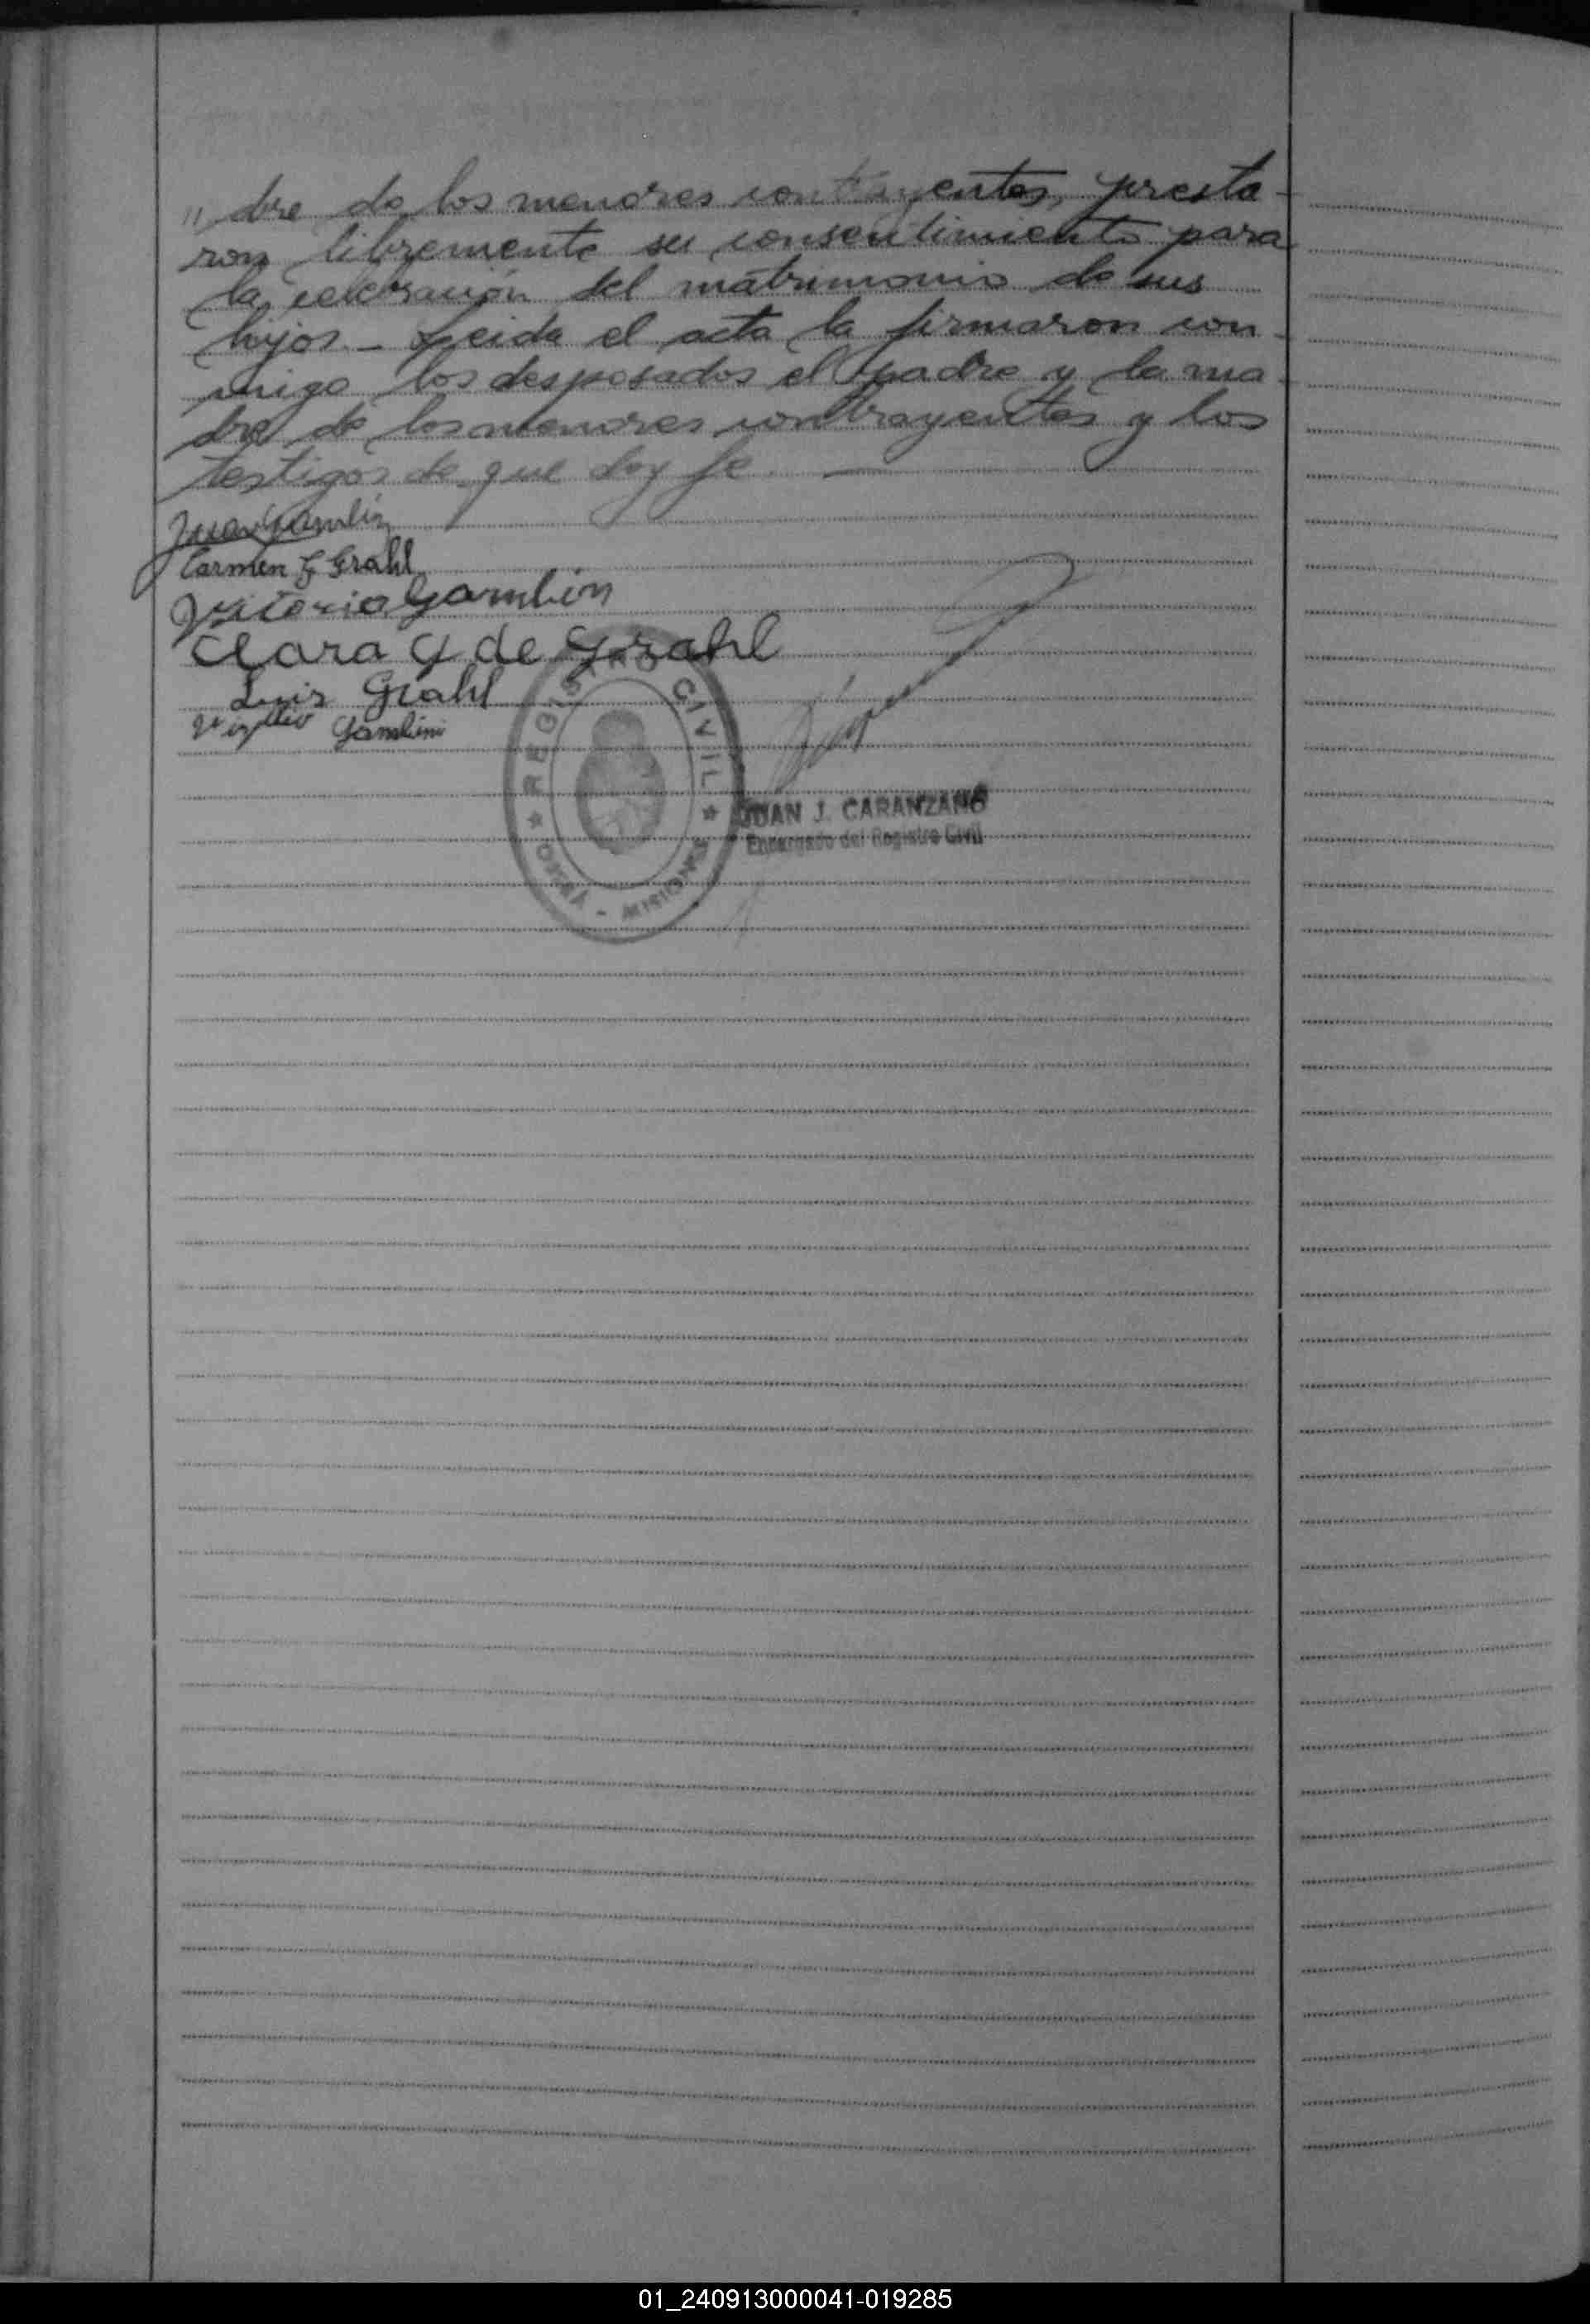 " dre de los menores contrayentes, presta-
ron libremente su consentimiento para
la celebración del matrimonio de sus
hijos - Leida el acta la firmaron con-
migo los desposados el padre y la ma-
dre de los menores contrayentes y los
testigos de que doy fe —
Juan Gambin
Carmen F Grahl
Vitorio Gambin
Clara G de Grahl
Luis Grahl
Gambini
REGISTRO CIVIL
MISIONES
JUAN J. CARANZANO
Encargado del Registro Civil
01_240913000041-019285